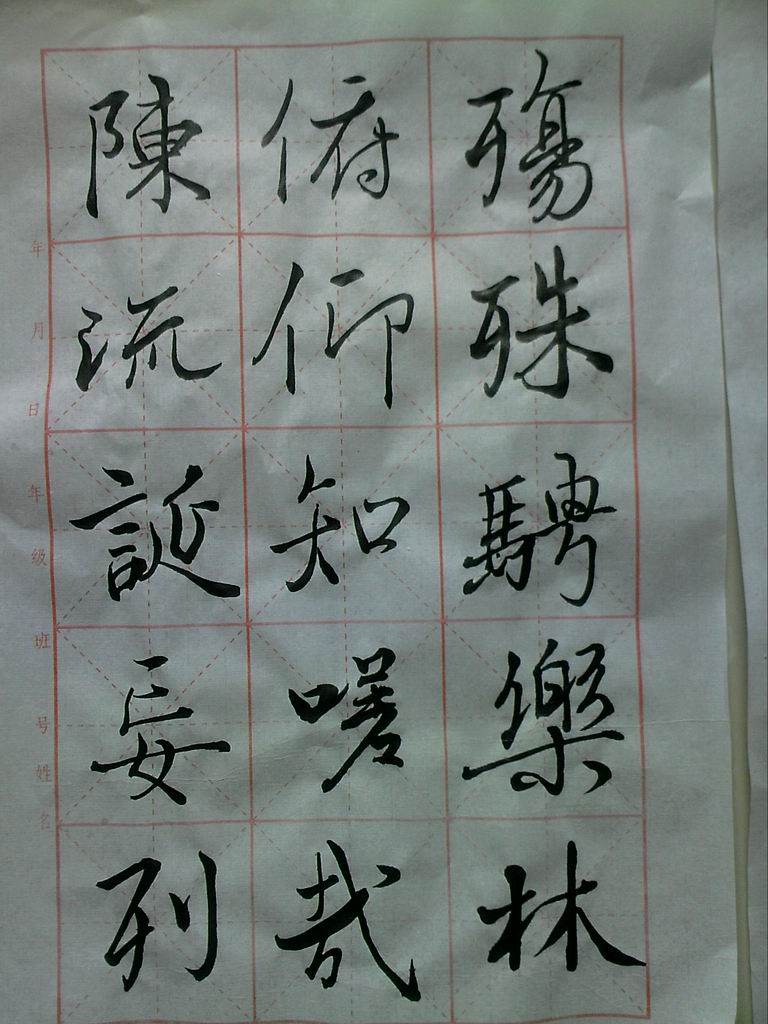 殤殊騁樂林
俯仰知嗟哉
陳流誕妄列
年 月 日 年 级 班 号 姓 名